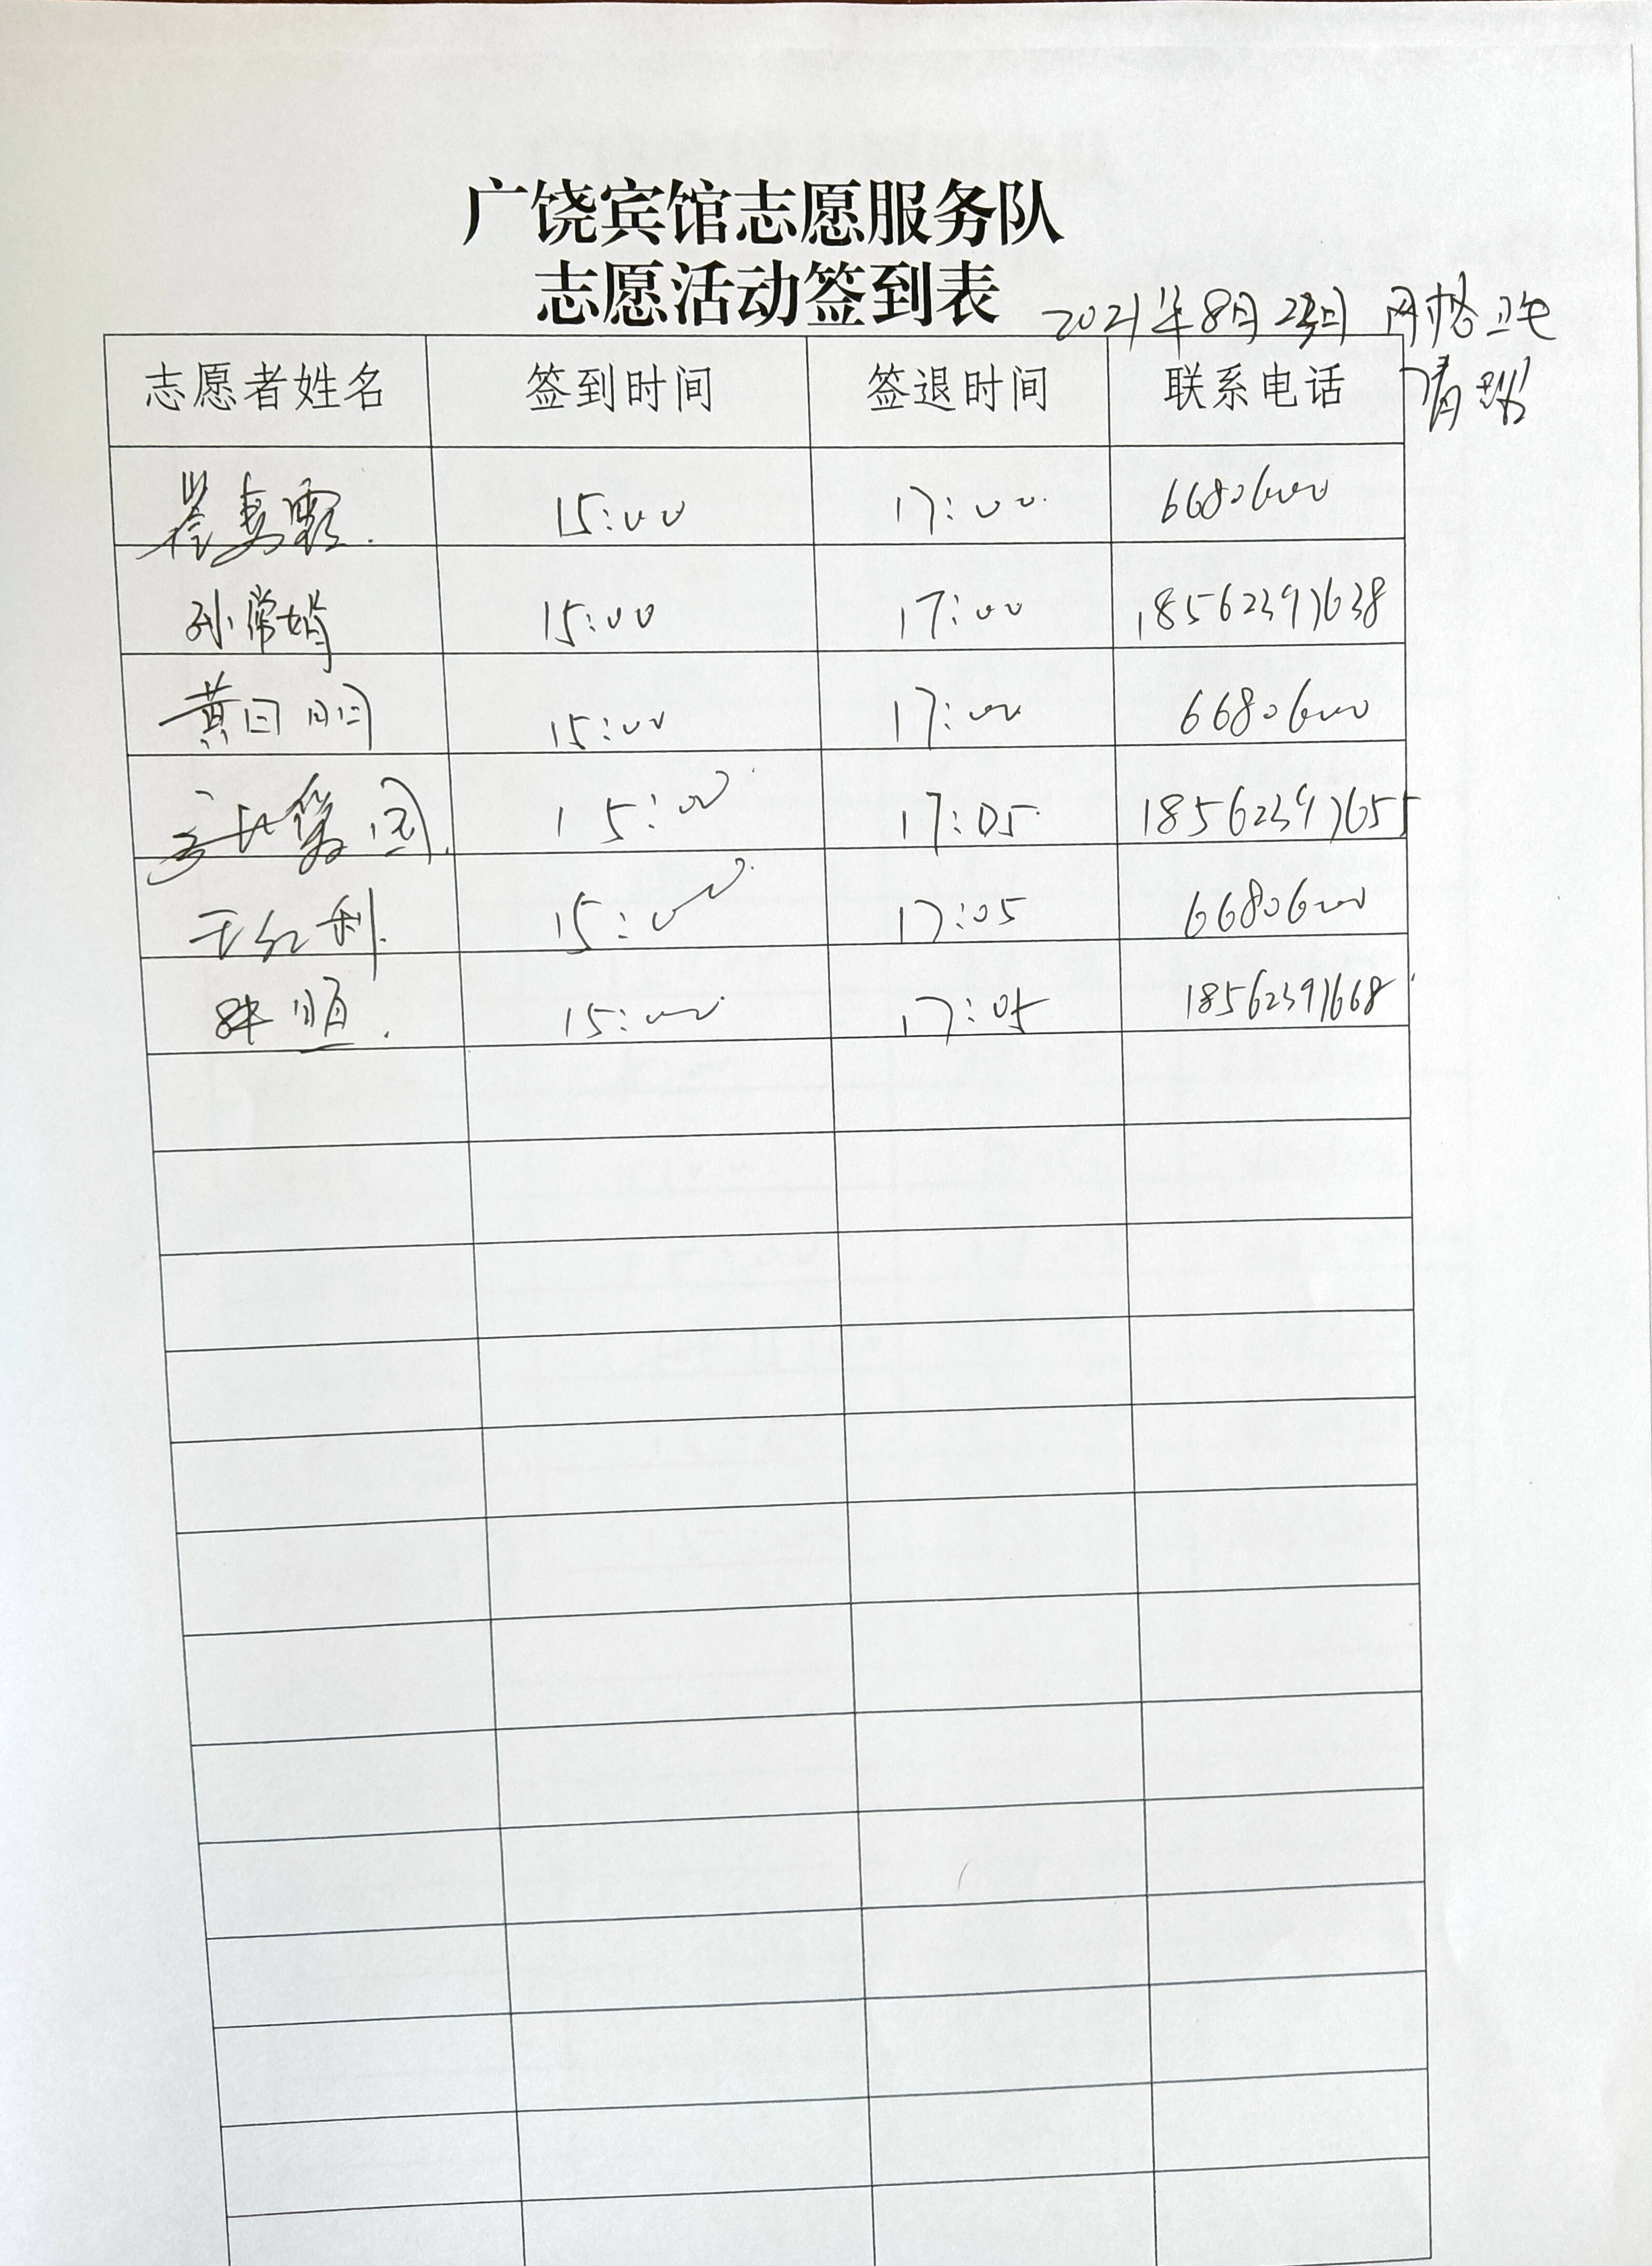 广饶宾馆志愿服务队
志愿活动签到表
2021年8月23日 网格卫生
清理
志愿者姓名 签到时间 签退时间 联系电话
15:00 17:00 6680600
孙常娟 15:00 17:00 18562397638
黄日明 15:00 17:00 6680600
15:00 17:05 18562397655
王红利 15:00 17:05 6680600
15:00 17:05 18562397668